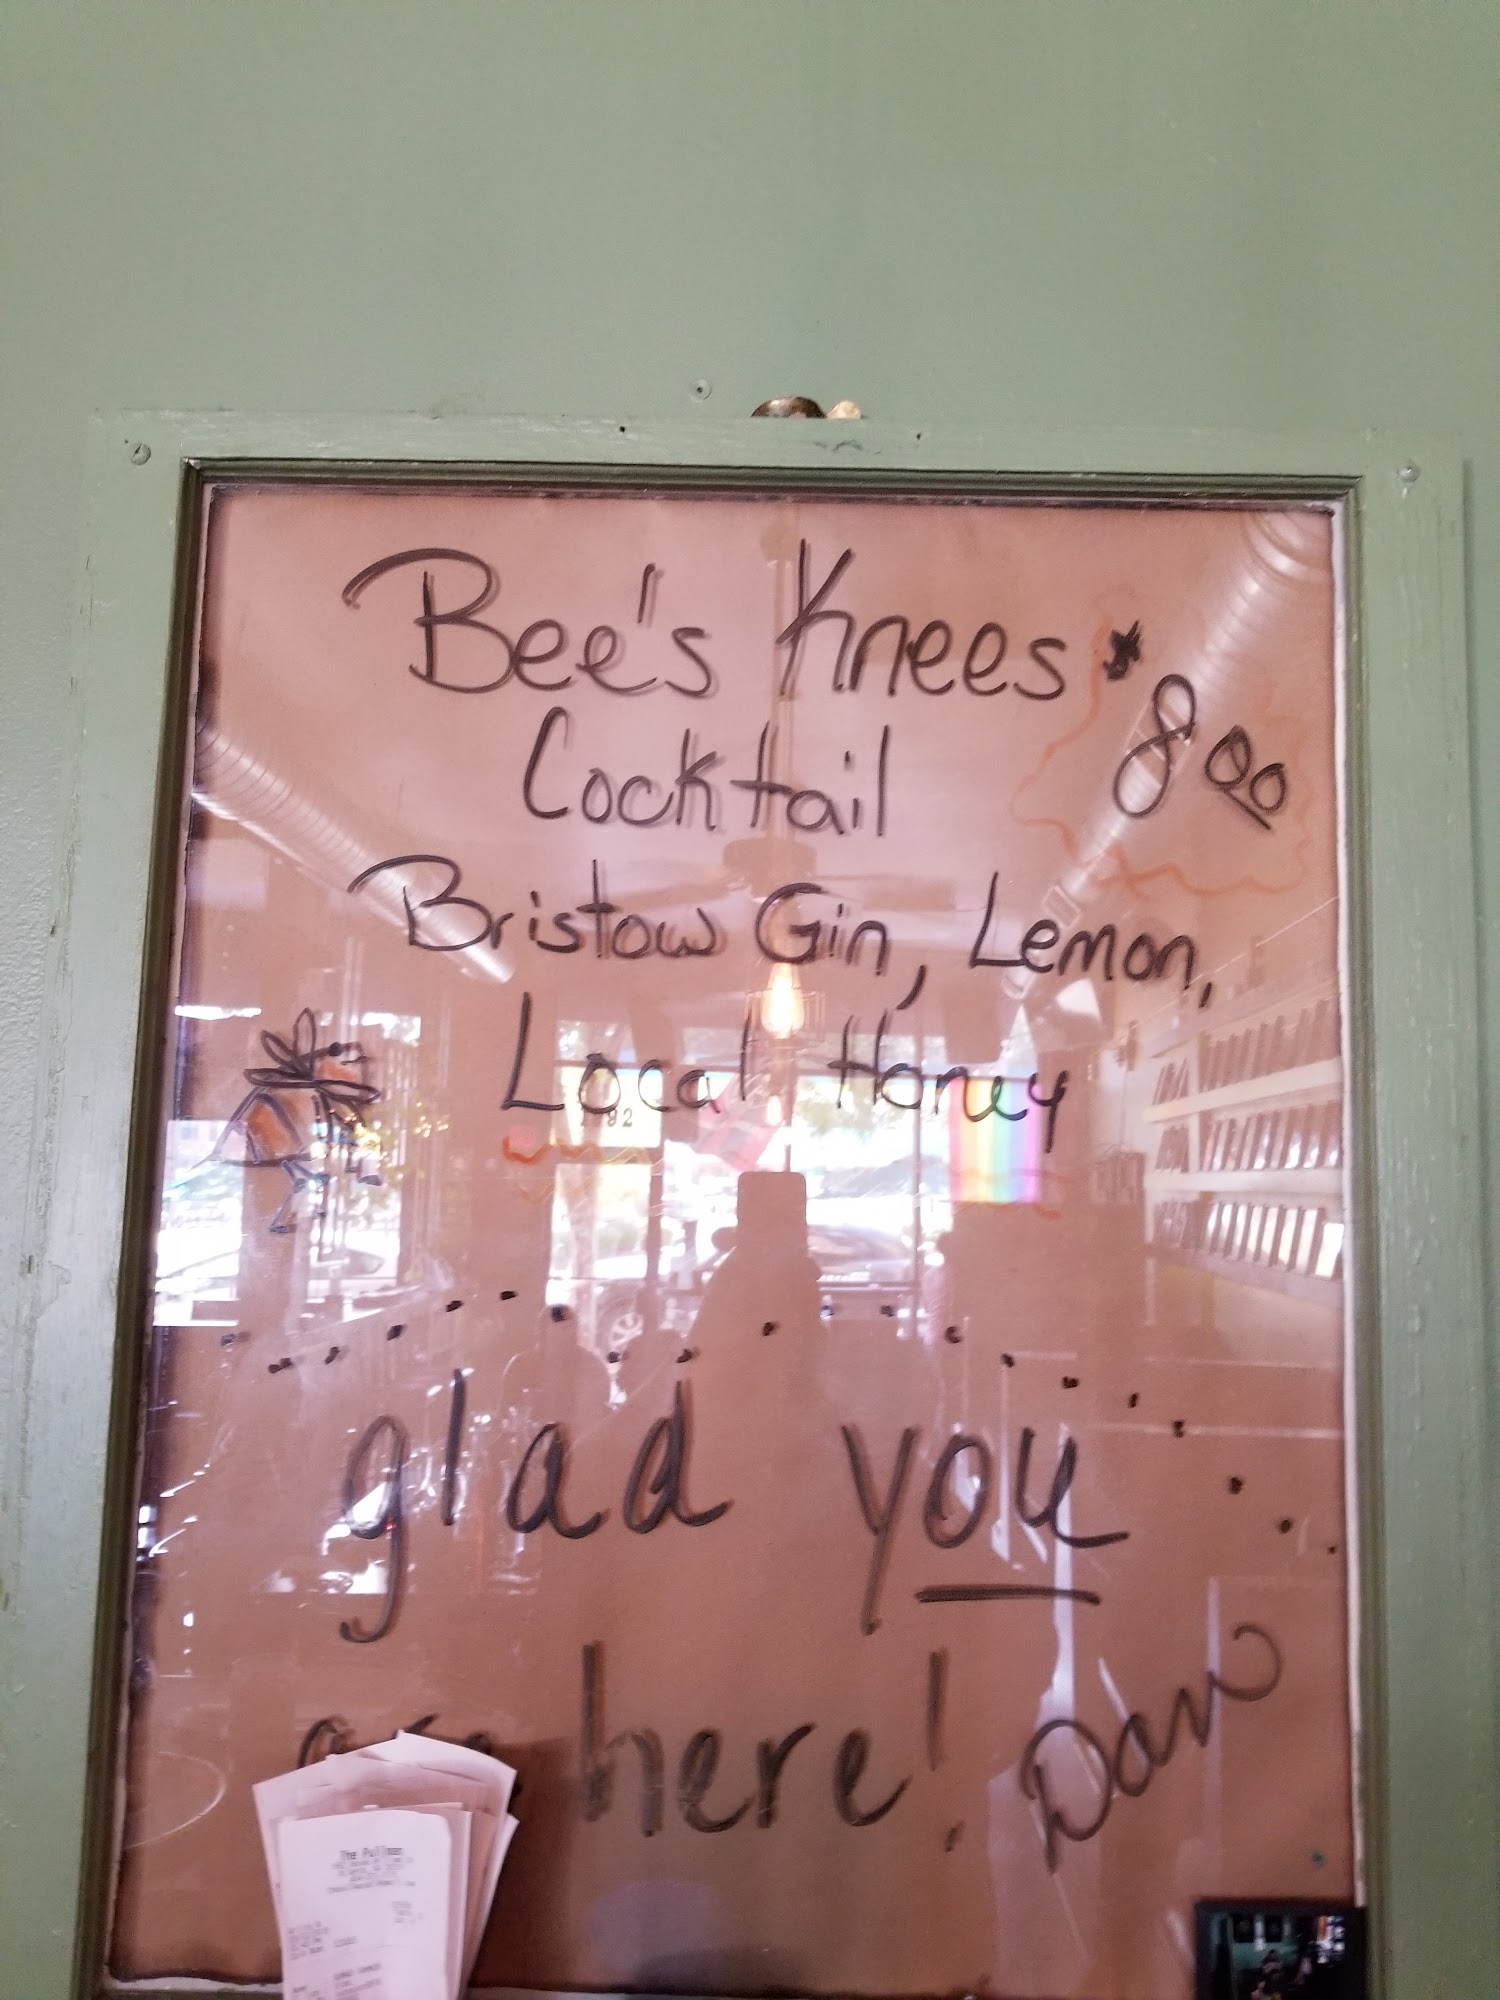 Bee's Knees *
8.00
Cocktail
Bristow Gin, Lemon,
Local Honey
glad you
are here!
The Pullman